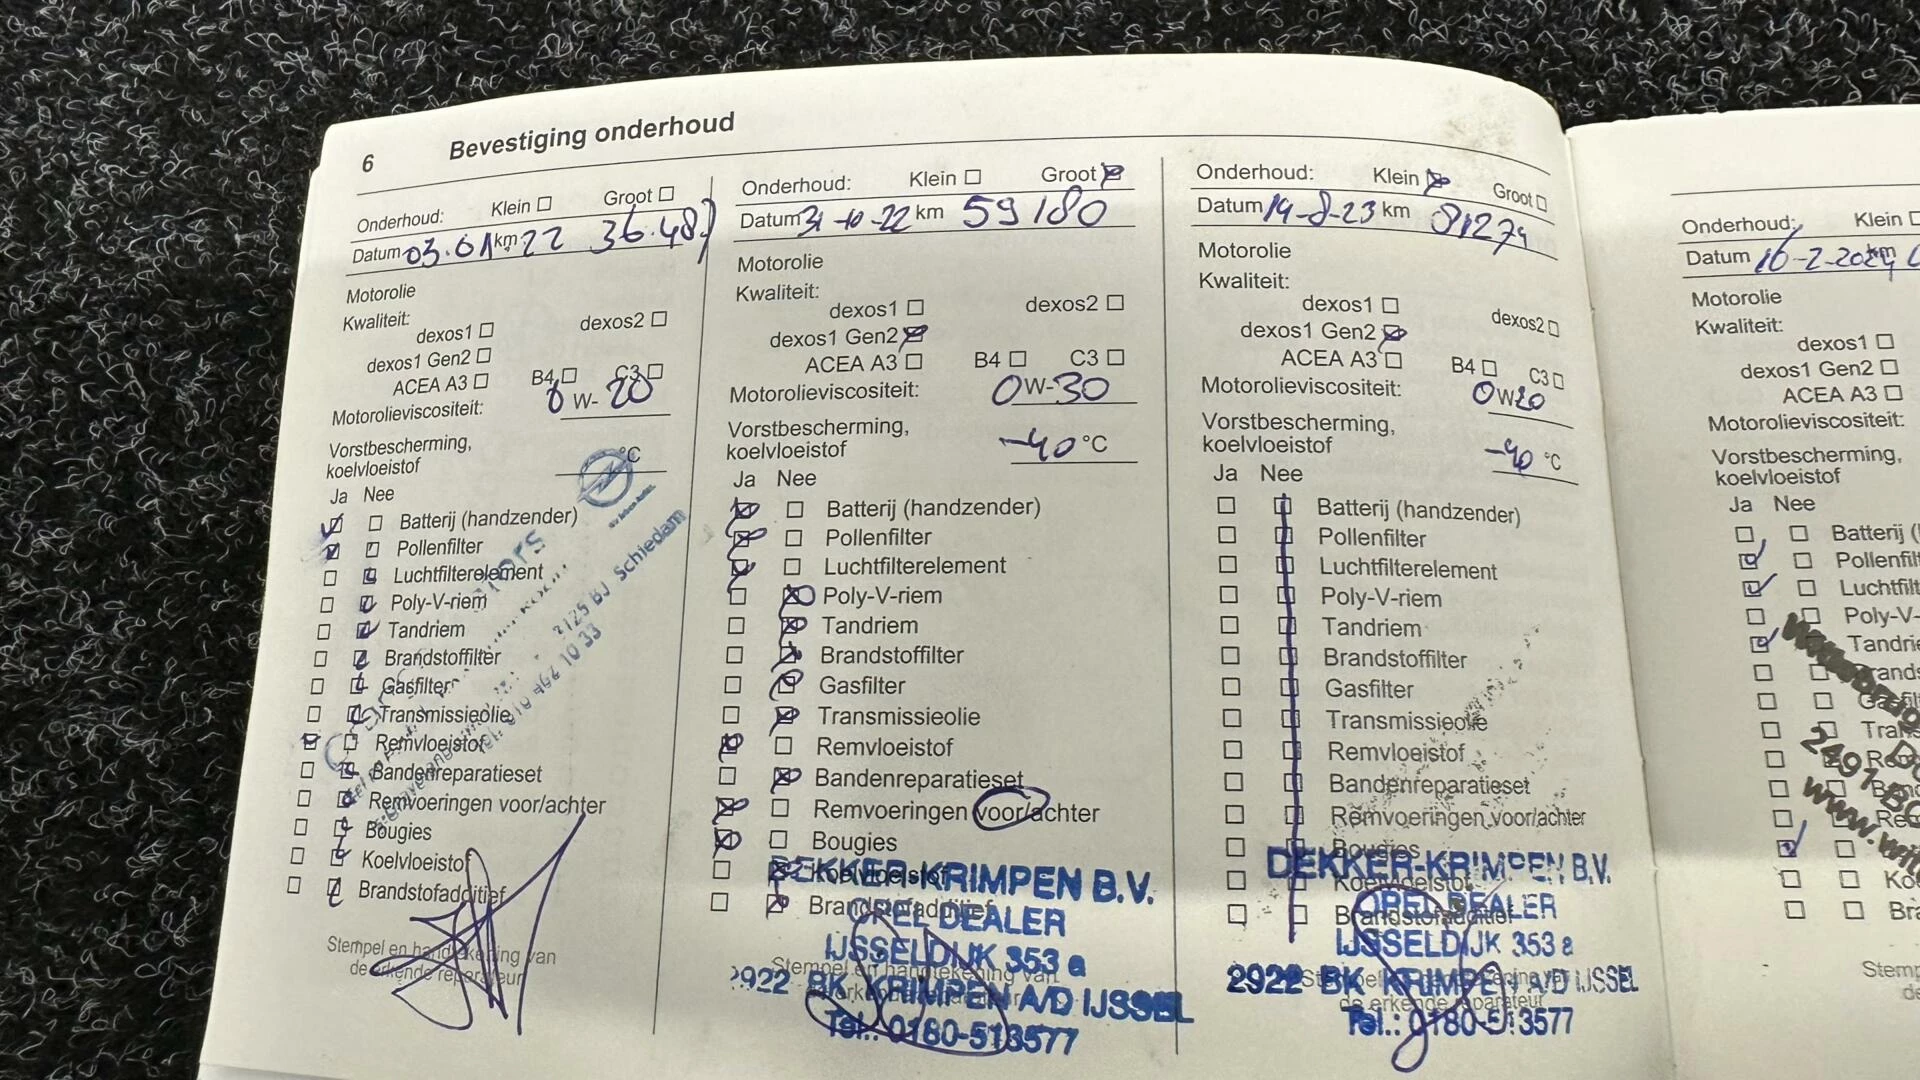 6 Bevestiging onderhoud
Onderhoud: Klein Groot
Datum 03.01 km 22 36.487
Motorolie
Kwaliteit:
dexos1 dexos2
dexos1 Gen2
ACEA A3 B4 C3
Motorolieviscositeit: 0 W- 20
Vorstbescherming,
koelvloeistof °C
Ja Nee
Batterij (handzender)
Pollenfilter
Luchtfilterelement
Poly-V-riem
Tandriem
Brandstoffilter
Gasfilter
Transmissieolie
Remvloeistof
Bandenreparatieset
Remvoeringen voor/achter
Bougies
Koelvloeistof
Brandstofadditief
Stempel en handtekening van
de erkende reparateur
Schiedam
Onderhoud: Klein Groot
Datum 31-10-22 km 59180
Motorolie
Kwaliteit:
dexos1 dexos2
dexos1 Gen2
ACEA A3 B4 C3
Motorolieviscositeit: 0W-30
Vorstbescherming,
koelvloeistof -40 °C
Ja Nee
Batterij (handzender)
Pollenfilter
Luchtfilterelement
Poly-V-riem
Tandriem
Brandstoffilter
Gasfilter
Transmissieolie
Remvloeistof
Bandenreparatieset
Remvoeringen voor/achter
Bougies
Koelvloeistof
Brandstofadditief
Stempel en handtekening van
DEKKER-KRIMPEN B.V.
OPEL DEALER
IJSSELDIJK 353 a
2922 BK KRIMPEN A/D IJSSEL
Tel.: 0180-513577
Onderhoud: Klein Groot
Datum 14-8-23 km 81279
Motorolie
Kwaliteit:
dexos1 dexos2
dexos1 Gen2
ACEA A3 B4 C3
Motorolieviscositeit: 0W20
Vorstbescherming,
koelvloeistof -40 °C
Ja Nee
Batterij (handzender)
Pollenfilter
Luchtfilterelement
Poly-V-riem
Tandriem
Brandstoffilter
Gasfilter
Transmissieolie
Remvloeistof
Bandenreparatieset
Remvoeringen voor/achter
Bougies
Koelvloeistof
Brandstofadditief
de erkende reparateur
DEKKER-KRIMPEN B.V.
OPEL DEALER
IJSSELDIJK 353 a
2922 BK KRIMPEN A/D IJSSEL
Tel.: 0180-513577
Onderhoud: Klein
Datum 16-2-2024 km
Motorolie
Kwaliteit:
dexos1
dexos1 Gen2
ACEA A3
Motorolieviscositeit:
Vorstbescherming,
koelvloeistof
Ja Nee
Batterij (
Pollenfil
Luchtfil
Poly-V-
Tandri
2491
www.wit